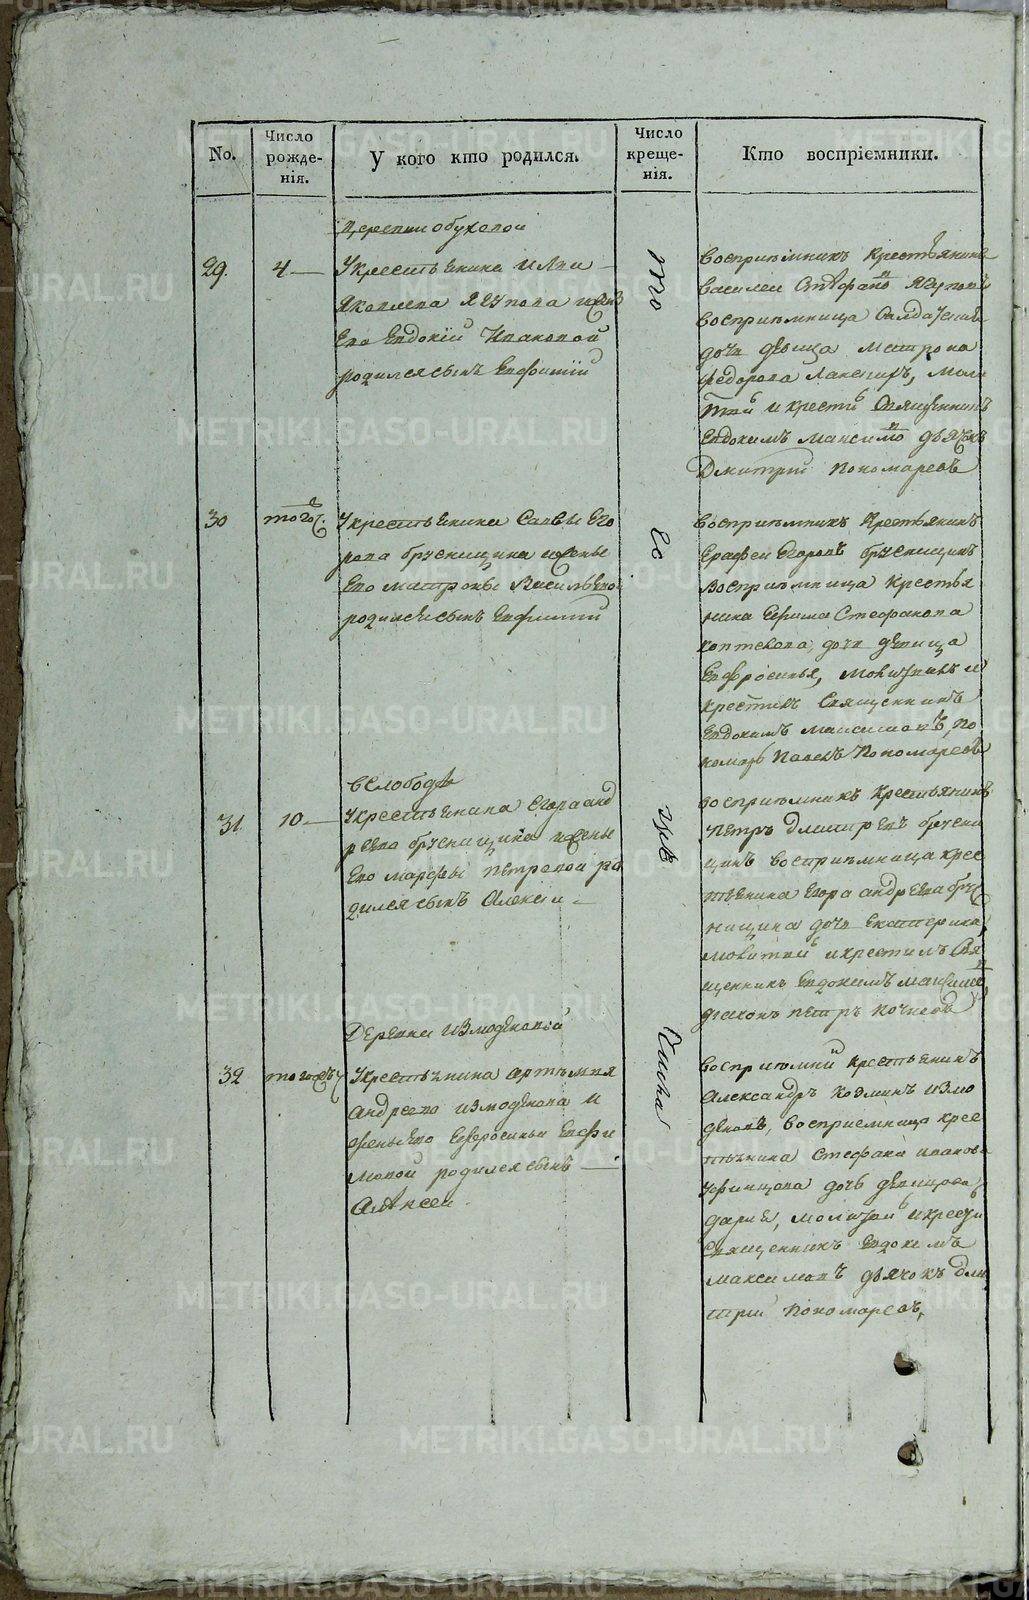 No.
Число рожде-нія.
У кого кто родился.
Число креще-нія.
Кто воспріемники.
деревни обуховой
29.
4
У крестьенина Ильи
Яковлева Ягупова и жены
Его Евдокіи Ивановой
родился сынъ Евфимій
Того
воспріемникъ крестьянинъ
Василеи Стефановъ Ягуповъ
восприемница Салдатская
дочь девица Матрона
федорова
т и крести Священникъ
Евдокимъ Максимо дьячекъ
Дмитрій Пономаревъ
30
того
У крестьенина Саввы Его
рова брусницина и жены
Его матроны Васильевой
родился сынъ Евфимій
восприемникъ крестьянинъ
Егоровъ брусницинъ
восприемница крестья
нина Ефима Стефанова
коптелова, дочь девица
Евфросинья, молитвилъ и
крестилъ Священникъ
Евдокимъ максимовъ, по
номарь Павелъ Пономаревъ
в Слободе
31
10
У крестьенина Егора анд
реева брусницина и жены
Его марфы петровой ро
дился сынъ Алексеи
воспріемникъ крестьянинъ
петръ Дмитревъ брусни
цинъ восприемница крес
тьенина Егора андреева брус
ницина дочь Екатерина,
молитвилъ и крестилъ Свя
щенникъ Евдокимъ максимо
диаконъ петръ Кочневъ
Деревни Измоденовой
32
У крестьенина Артемия
Андреева измоденова и
жены его Евфросиньи Евфи
мовой родился сынъ
Алексеи
воспріемни крестьенинъ
Александръ Козминъ измо
деновъ, восприемница крес
тьенина Стефана иванова
дочь девица
дарья, молитвилъ и крести
Священникъ Евдокимъ
максимовъ дьячокъ дми
трій пономаревъ,
METRIKI.GASO-URAL.RU